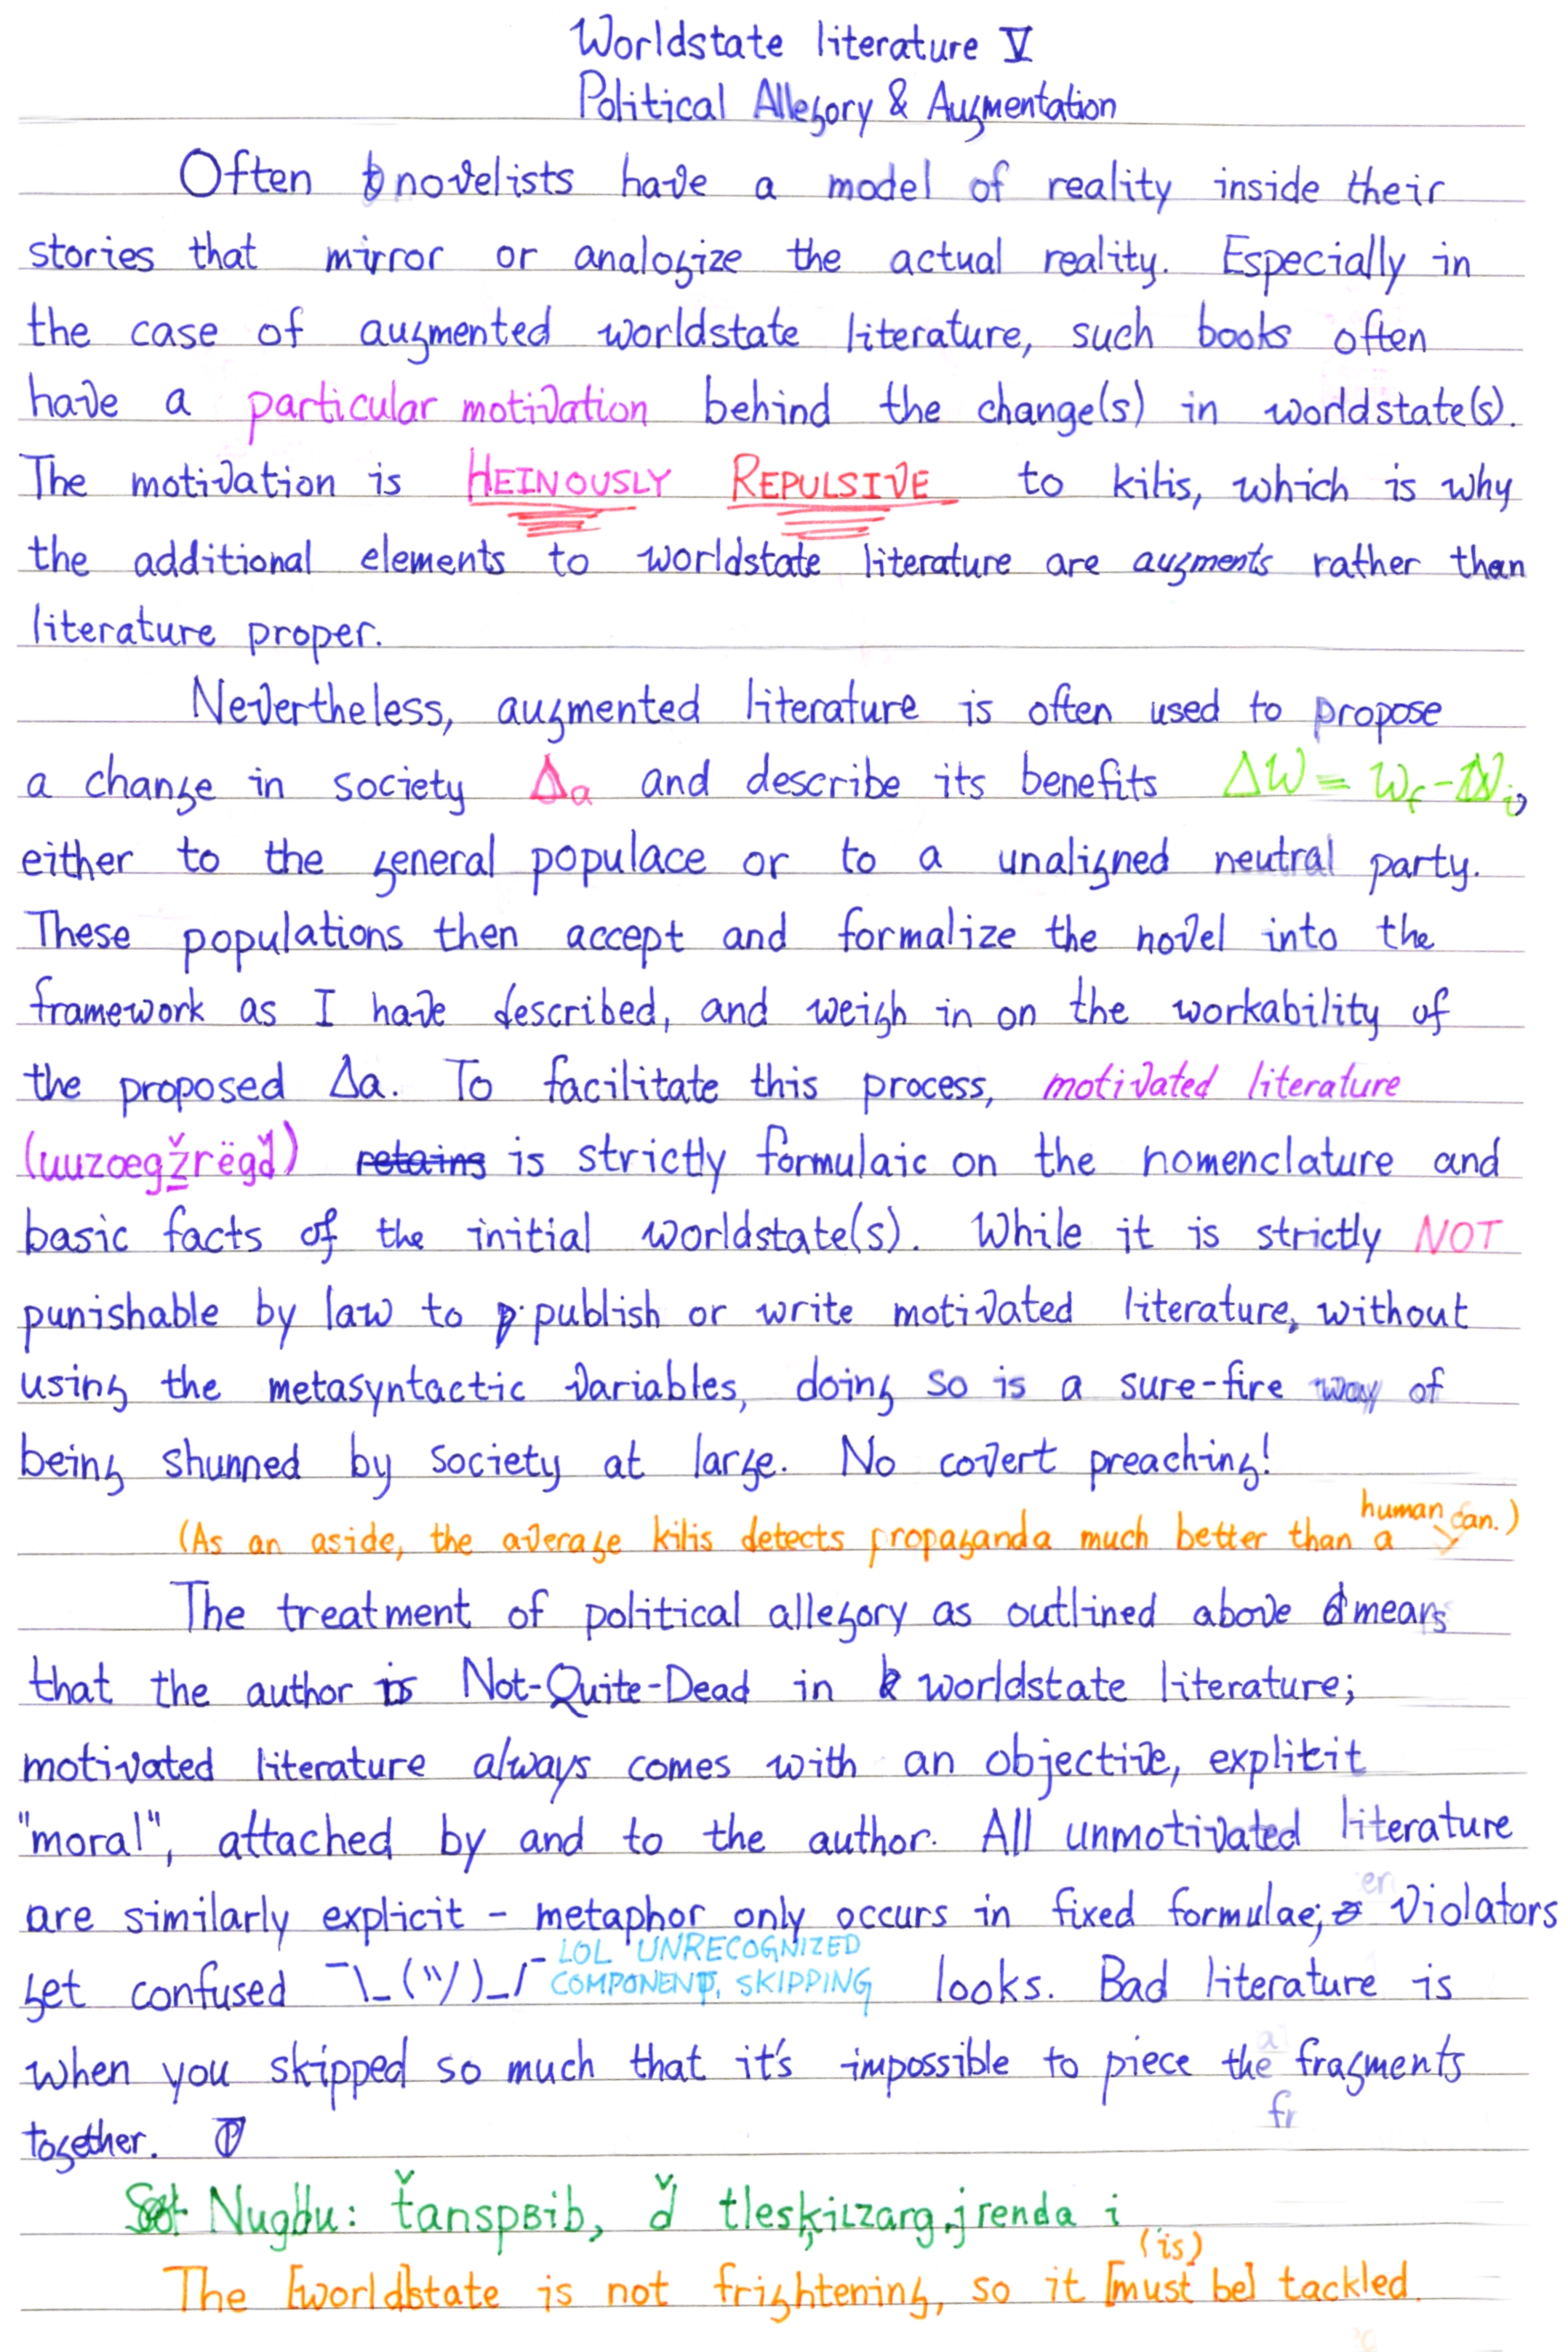 Worldstate literature V
Political Allegory & Augmentation
Often novelists have a model of reality inside their
stories that mirror or analogize the actual reality. Especially in
the case of augmented worldstate literature, such books often
have a particular motivation behind the change(s) in worldstate(s).
The motivation is HEINOUSLY REPULSIVE to kilis, which is why
the additional elements to worldstate literature are augments rather than
literature proper.
Nevertheless, augmented literature is often used to propose
a change in society Δa and describe its benefits ΔW = Wf - Wi,
either to the general populace or to a unaligned neutral party.
These populations then accept and formalize the novel into the
framework as I have described, and weigh in on the workability of
the proposed Δa. To facilitate this process, motivated literature
(uuzoegžrëgď) retains is strictly formulaic on the nomenclature and
basic facts of the initial worldstate(s). While it is strictly NOT
punishable by law to publish or write motivated literature, without
using the metasyntactic variables, doing so is a sure-fire way of
being shunned by society at large. No covert preaching!
(As an aside, the average kilis detects propaganda much better than a human can.)
The treatment of political allegory as outlined above means
that the author is Not-Quite-Dead in worldstate literature;
motivated literature always comes with an objective, explicit
"moral", attached by and to the author. All unmotivated literature
are similarly explicit - metaphor only occurs in fixed formulae; Violators
get confused ¯\_(ツ)_/¯ LOL UNRECOGNIZED
COMPONENT, SKIPPING looks. Bad literature is
when you skipped so much that it's impossible to piece the fragments
together.
Nugbu: ťanspвib, ď tlesķiʟzarg.jrenda i
The [world]state is not frightening, so it [must be] (is) tackled.